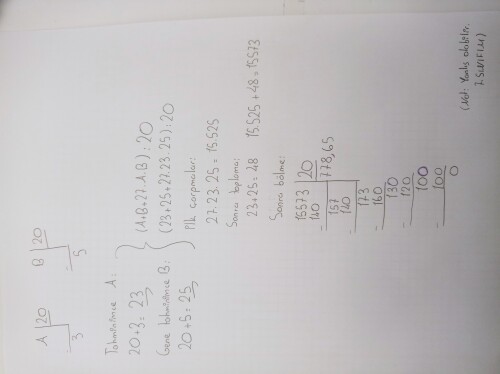 A | 20
3
B | 20
5
Tahminimce A:
20+3 = 23
Gene tahminimce B:
20+5 = 25
(A+B+27.A.B) : 20
(23+25+27.23.25) : 20
İlk çarpmalar:
27.23.25 = 15.525
Sonra toplama:
23+25 = 48 15.525 + 48 = 15573
Sonra bölme:
15573 | 20
140 778,65
- 157
140
- 173
160
- 130
120
- 100
100
- 0
(Not: Yanlış olabilir.
7.SINIFIM)